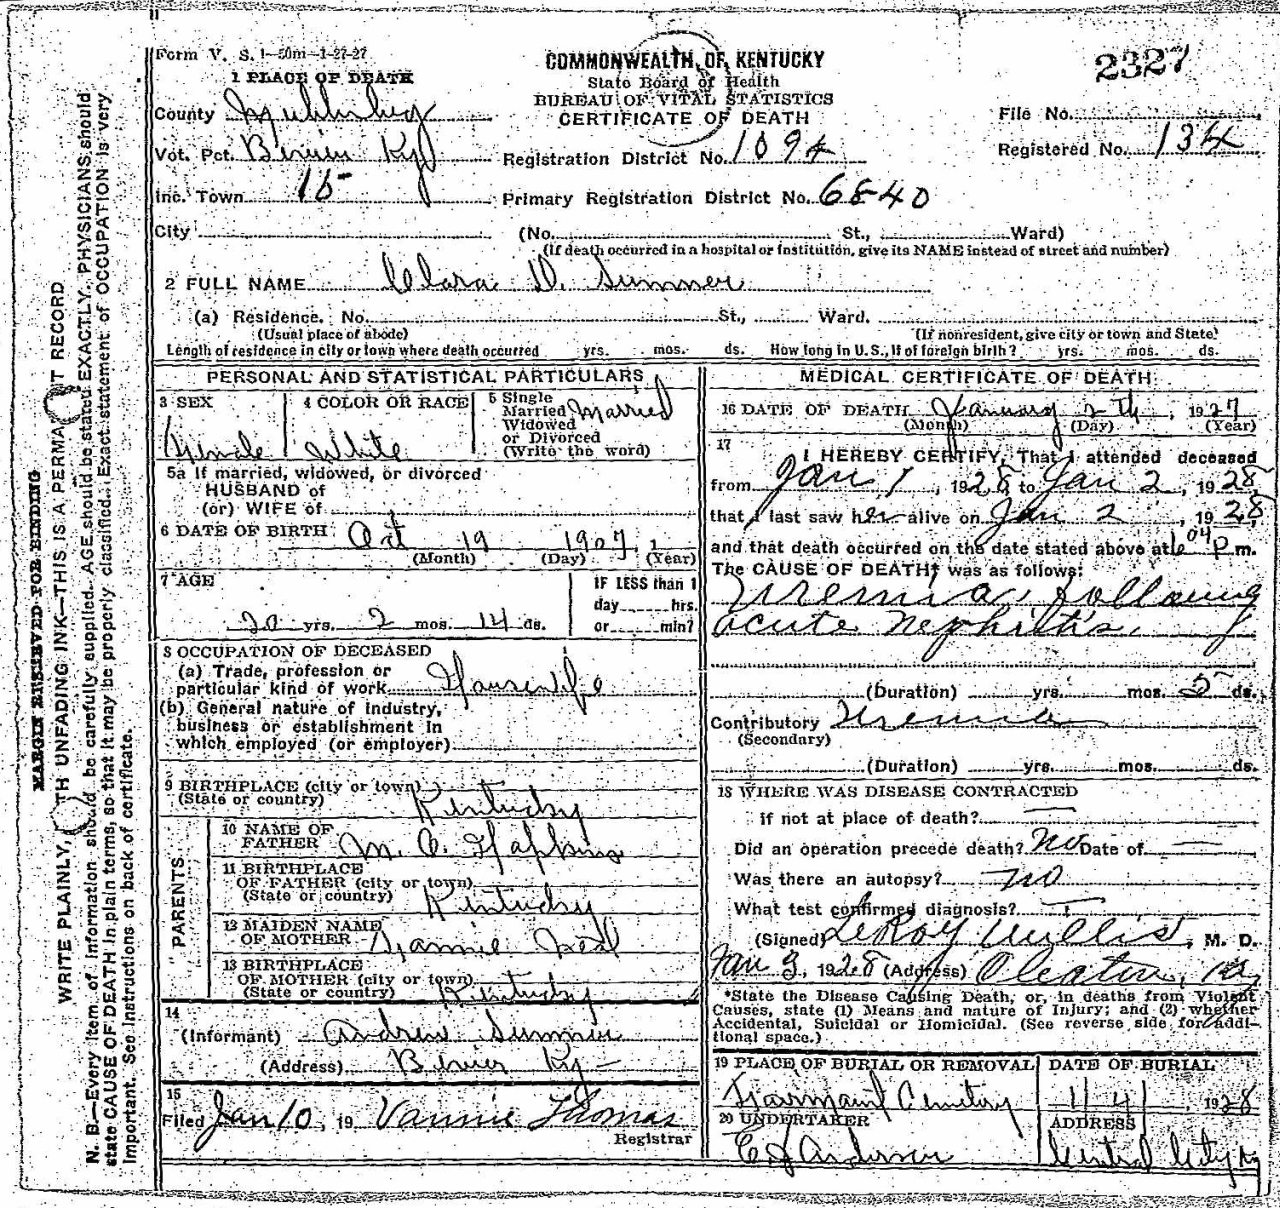 Form V. S. 1—50m—1-27-27
COMMONWEALTH OF KENTUCKY
State Board of Health
BUREAU OF VITAL STATISTICS
CERTIFICATE OF DEATH
2327
1 PLACE OF DEATH
County Muhlenberg
Vot. Pct. Ky
Inc. Town 15
City
Registration District No. 1094
Primary Registration District No. 6840
File No.
Registered No. 134
(No. St., Ward)
(If death occurred in a hospital or institution, give its NAME instead of street and number)
2 FULL NAME Clara D. Sumner
(a) Residence. No. St., Ward.
(Usual place of abode) (If nonresident, give city or town and State)
Length of residence in city or town where death occurred yrs. mos. ds. How long in U. S., if of foreign birth? yrs. mos. ds.
PERSONAL AND STATISTICAL PARTICULARS
3 SEX Female
4 COLOR OR RACE White
5 Single Married Widowed or Divorced (Write the word) Married
5a If married, widowed, or divorced
HUSBAND of
(or) WIFE of
6 DATE OF BIRTH Oct 19 1907
(Month) (Day) (Year)
7 AGE
20 yrs. 2 mos. 14 ds.
IF LESS than 1
day hrs.
or min?
8 OCCUPATION OF DECEASED
(a) Trade, profession or
particular kind of work Housewife
(b) General nature of industry,
business or establishment in
which employed (or employer)
9 BIRTHPLACE (city or town)
(State or country) Kentucky
PARENTS
10 NAME OF
FATHER M. C. Hopkins
11 BIRTHPLACE
OF FATHER (city or town)
(State or country) Kentucky
12 MAIDEN NAME
OF MOTHER Neal
13 BIRTHPLACE
OF MOTHER (city or town)
(State or country) Kentucky
14
(Informant) Andrew Sumner
(Address) Ky
15
Filed Jan 10, 19 Vannie Thomas
Registrar
MEDICAL CERTIFICATE OF DEATH
16 DATE OF DEATH January 2th, 1927
(Month) (Day) (Year)
17
I HEREBY CERTIFY, That I attended deceased
from Jan 1, 1928, to Jan 2, 1928
that I last saw her alive on Jan 2, 1928,
and that death occurred on the date stated above at 6 04 P. m.
The CAUSE OF DEATH* was as follows:
Uremia, following
acute nephritis.
(Duration) yrs. mos. 5 ds.
Contributory Uremia
(Secondary)
(Duration) yrs. mos. ds.
18 WHERE WAS DISEASE CONTRACTED
if not at place of death? —
Did an operation precede death? No Date of —
Was there an autopsy? no
What test confirmed diagnosis?
(Signed) LeRoy Willis, M. D.
Jan 3, 1928 (Address) Oleaton, Ky
*State the Disease Causing Death, or, in deaths from Violent
Causes, state (1) Means and nature of Injury; and (2) whether
Accidental, Suicidal or Homicidal. (See reverse side for addi-
tional space.)
19 PLACE OF BURIAL OR REMOVAL
Fairmount Cemetery
DATE OF BURIAL
1/4/, 1928
20 UNDERTAKER
E J Anderson
ADDRESS
Central City Ky
MARGIN RESERVED FOR BINDING
WRITE PLAINLY, TH UNFADING INK—THIS IS A PERMA T RECORD
N. B.—Every item of information should be carefully supplied. AGE should be stated EXACTLY. PHYSICIANS should
state CAUSE OF DEATH in plain terms, so that it may be properly classified. Exact statement of OCCUPATION is very
important. See instructions on back of certificate.